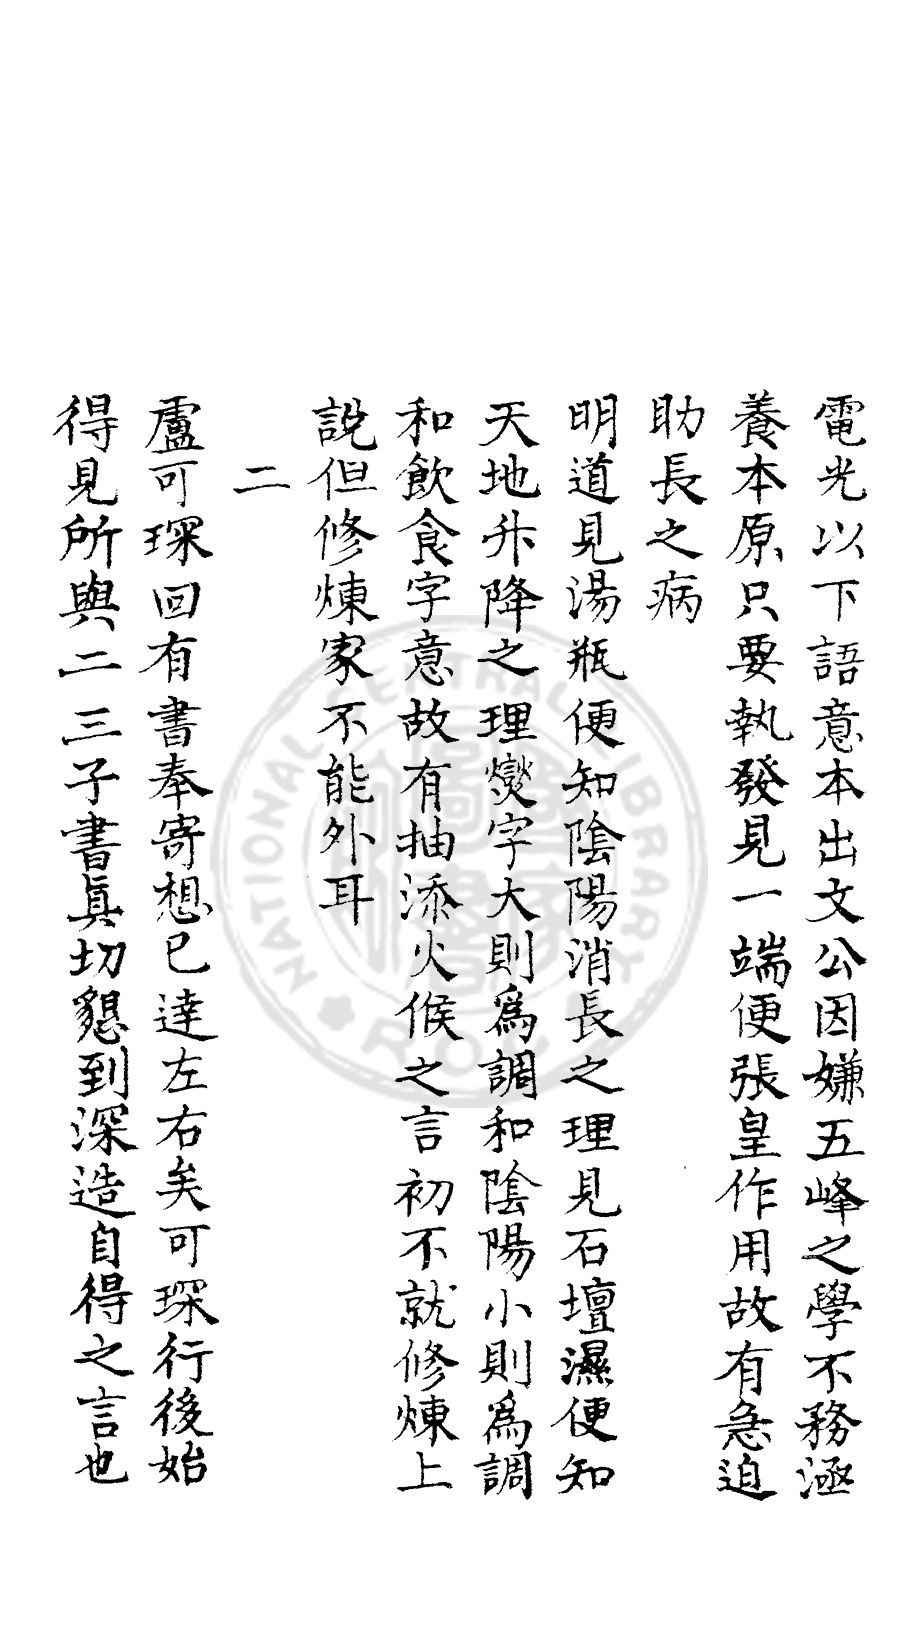 電光以下語意本出文公因嫌五峰之學不務涵
養本原只要執發見一端便張皇作用故有急迫
助長之病
明道見湯瓶便知陰陽消長之理見石壇濕便知
天地升降之理燮字大則為調和陰陽小則為調
和飲食字意故有抽添火候之言初不就修煉上
說但修煉家不能外耳
二
盧可琛回有書奉寄想已達左右矣可琛行後始
得見所與二三子書真切懇到深造自得之言也
NATIONAL CENTRAL LIBRARY
R.O.C